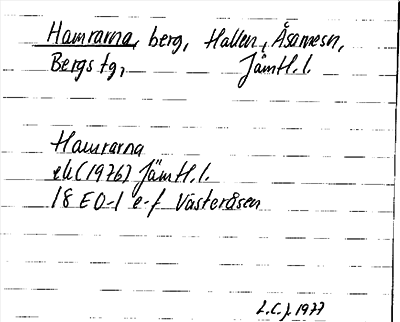 Hamrarna, berg, Hallen, Åsarnesn,
Bergs tg, Jämtl. l.
Hamrarna
ek (1976) Jämtl. l.
18 E 0-1 e-f Västeråsen
L.C.J. 1977